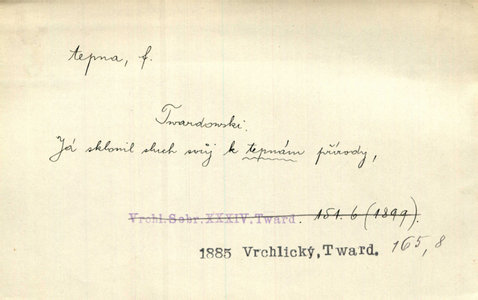 tepna, f.
Twardowski.
Já sklonil sluch svůj k tepnám přírody,
Vrchl.Sebr.XXXIV,Tward. 151.6 (1899).
1885 Vrchlický, Tward. 165,8